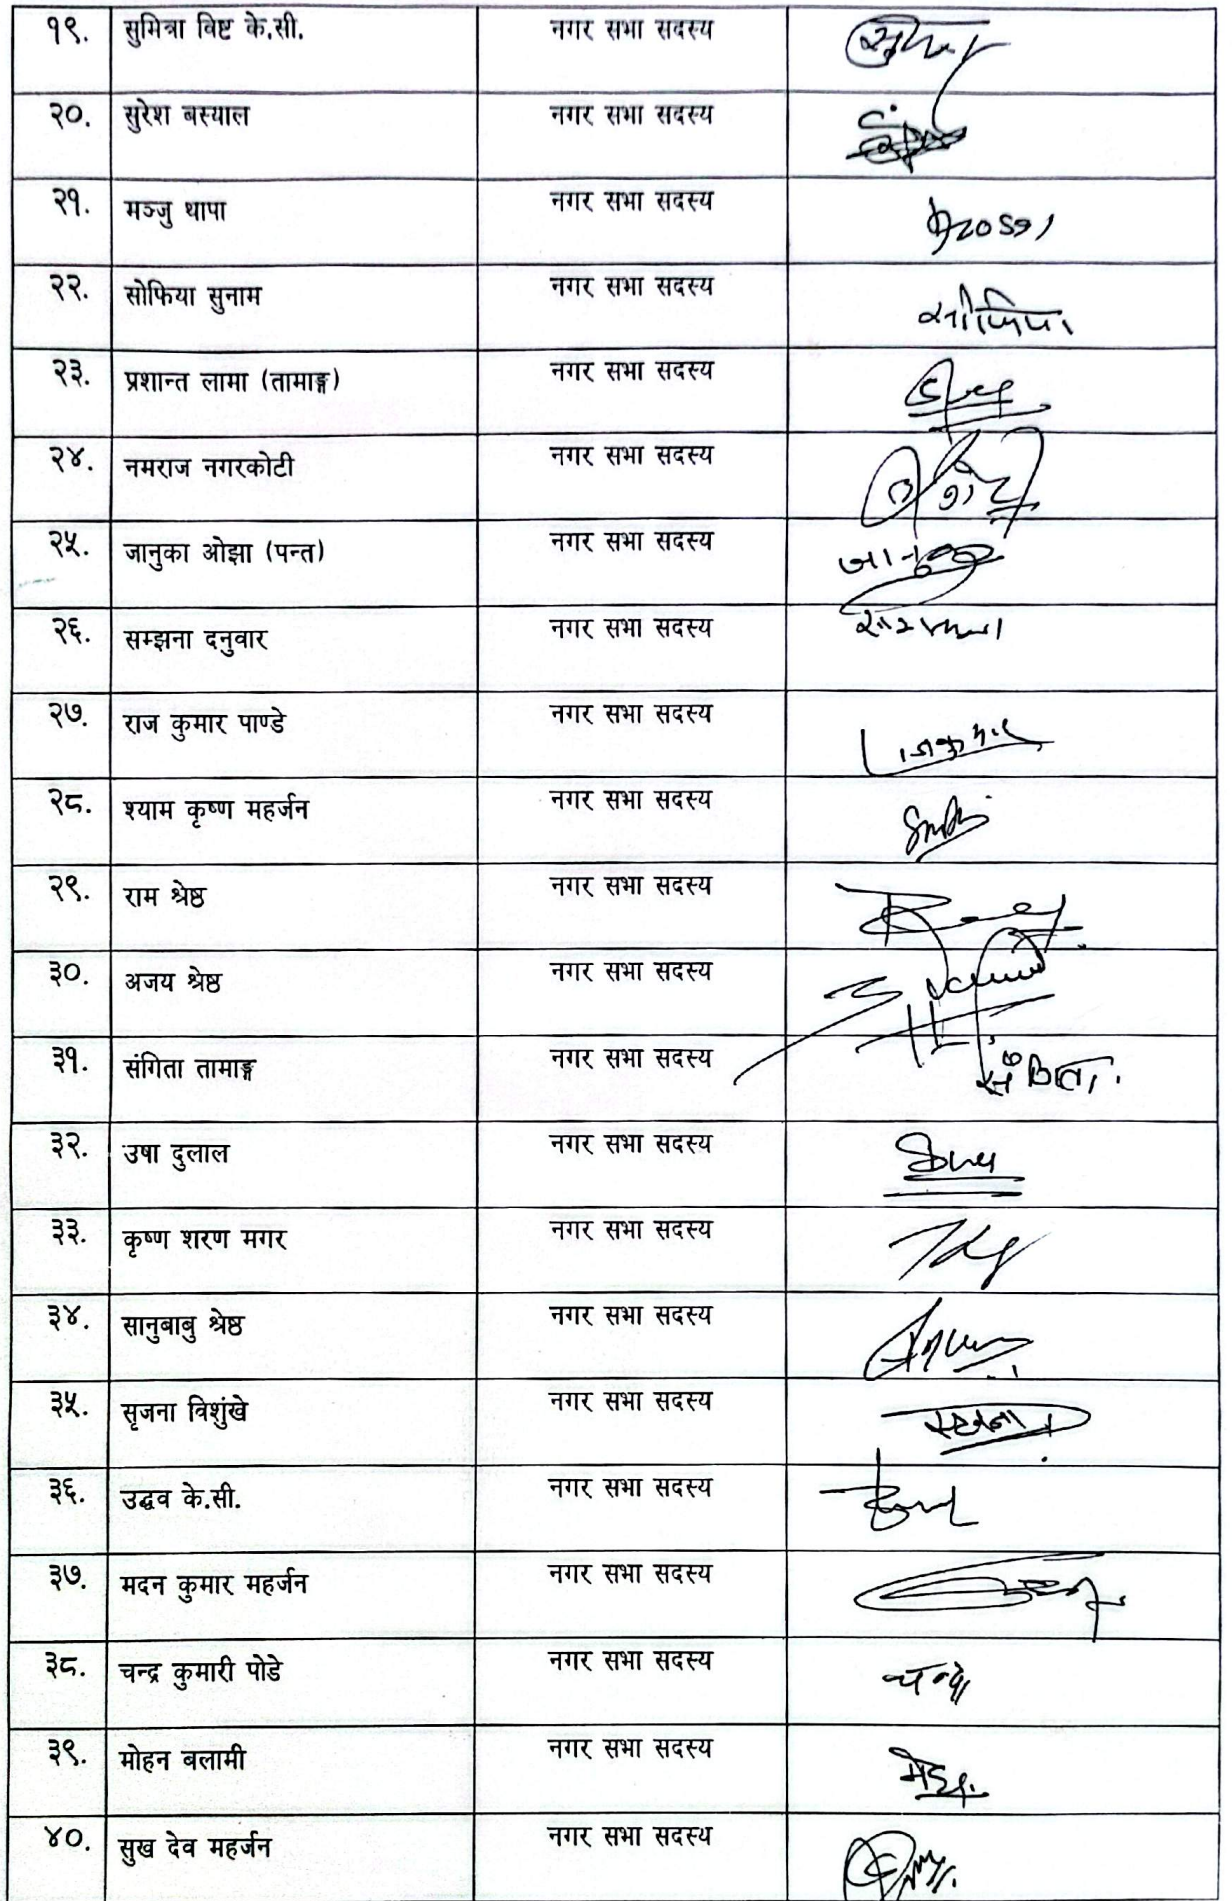 १९. सुमित्रा विष्ट के.सी. नगर सभा सदस्य
२०. सुरेश बस्याल नगर सभा सदस्य
२१. मञ्जु थापा नगर सभा सदस्य
२२. सोफिया सुनाम नगर सभा सदस्य
२३. प्रशान्त लामा (तामाङ्ग) नगर सभा सदस्य
२४. नमराज नगरकोटी नगर सभा सदस्य
२५. जानुका ओझा (पन्त) नगर सभा सदस्य
२६. सम्झना दनुवार नगर सभा सदस्य
२७. राज कुमार पाण्डे नगर सभा सदस्य
२८. श्याम कृष्ण महर्जन नगर सभा सदस्य
२९. राम श्रेष्ठ नगर सभा सदस्य
३०. अजय श्रेष्ठ नगर सभा सदस्य
३१. संगिता तामाङ्ग नगर सभा सदस्य
३२. उषा दुलाल नगर सभा सदस्य
३३. कृष्ण शरण मगर नगर सभा सदस्य
३४. सानुबाबु श्रेष्ठ नगर सभा सदस्य
३५. सृजना विशुंखे नगर सभा सदस्य
३६. उद्धव के.सी. नगर सभा सदस्य
३७. मदन कुमार महर्जन नगर सभा सदस्य
३८. चन्द्र कुमारी पोडे नगर सभा सदस्य
३९. मोहन बलामी नगर सभा सदस्य
४०. सुख देव महर्जन नगर सभा सदस्य